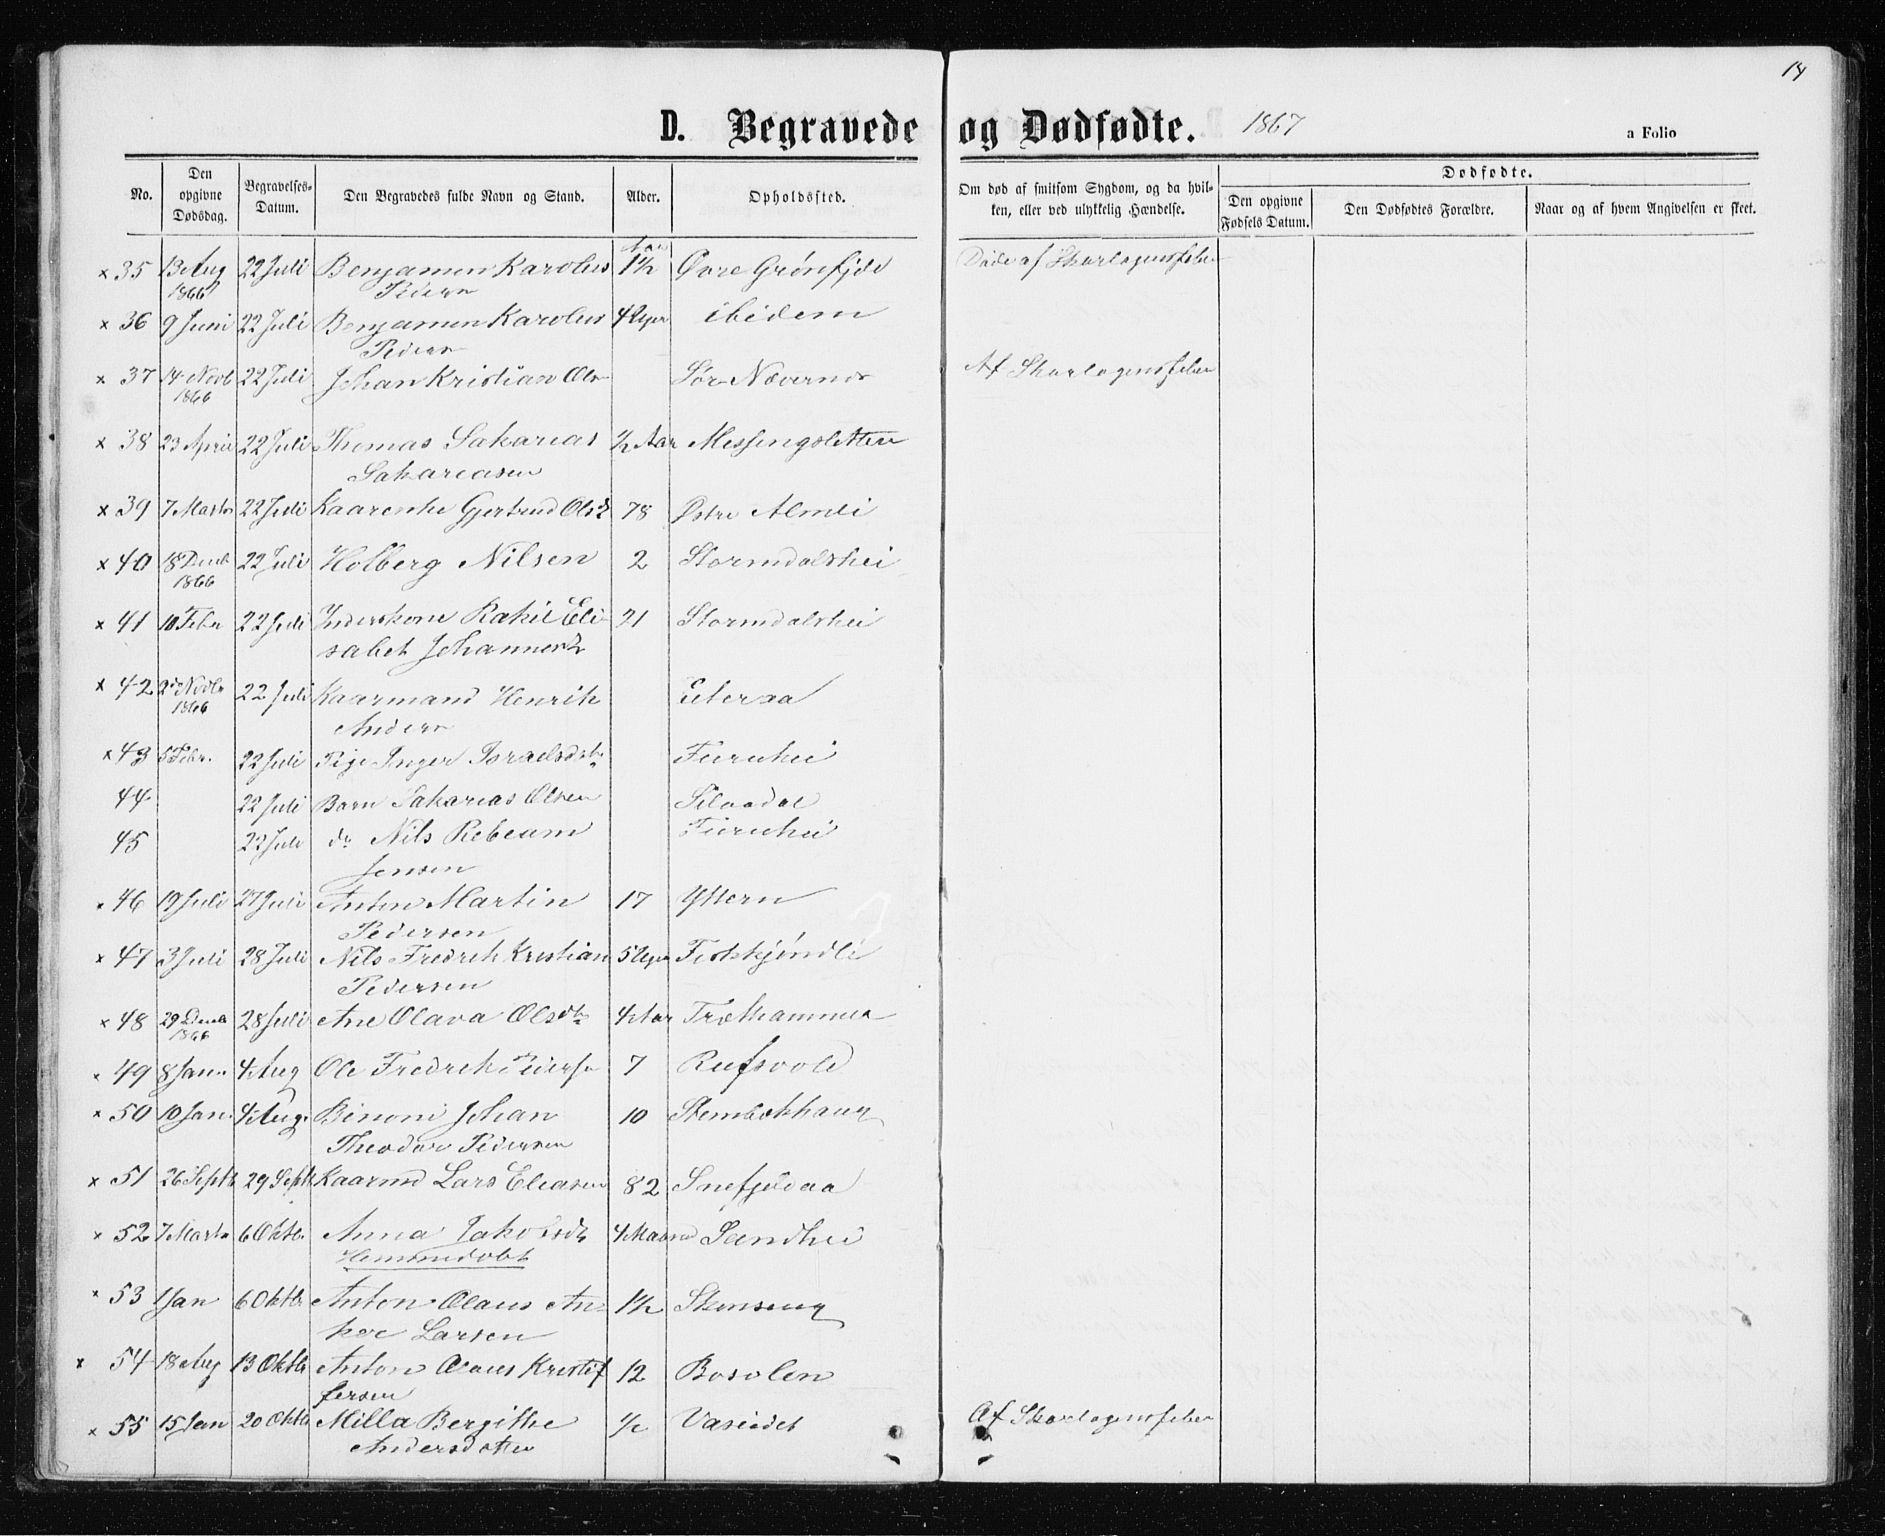 14
D. Begravede og Dødfødte. 1867
a Folio
No.
Den opgivne Dødsdag.
Begravelses-Datum.
Den Begravedes fulde Navn og Stand.
Alder.
Opholdssted.
Om død af smitsom Sygdom, og da hvilken, eller ved ulykkelig Hændelse.
Dødfødte.
Den opgivne Fødsels Datum.
Den Dødfødtes Forældre.
Naar og af hvem Angivelsen er skeet.
Aar
x 35 13 Aug 22 Juli Benjamen Karolus 1½ Øvre Grønfjeld Døde af Skarlagensfeber
1866 Peders
x 36 9 Juni 22 Juli Benjamen Karolus 4 Uger ibidem
Peders
x 37 14 Novb 22 Juli Johan Kristian Ols Sør Nævernes Af Skarlagensfeber
1866
x 38 23 April 22 Juli Thomas Sakarias ½ Aar Messingsletten
Sakariasen
x 39 7 Marts 22 Juli Kaarenke Gjertrud Olsd 78 Østre Almli
x 40 18 Decmb 22 Juli Holberg Nilsen 2 Stormdalshei
1866
x 41 10 Febr 22 Juli Inderskone Rakel Eli 21 Stormdalshei
sabet Johannesd
x 42 Novbr 22 Juli Kaarmand Henrik Eiteraa
1866 Anders
x 43 5 Febr. 22 Juli Pige Inger Israelsdtr Furuhei
44 22 Juli Barn Sakarias Olsen
45 22 Juli do Nils Rebeum Furuhei
Jensen
x 46 19 Juli 27 Juli Anton Martin 17 Yttern
Pedersen
x 47 3 Juli 28 Juli Nils Fredrik Kristian 5 Uger Fiskkjøndli
Pedersen
x 48 29 Decmb 28 Juli Ane Olava Olsdtr 4 Aar Træthammer
1866
x 49 8 Jan. 4 Aug Ole Fredrik Peders 7 Rufsvold
x 50 10 Jan. 4 Aug. Binoni Johan 10 Stenbækhaug
Theodor Pedersen
x 51 26 Septb 29 Septb Kaarmd Lars Eliasen 82 Snefjeldaa
x 52 7 Marts 6 Oktb. Anna Jakobsdtr 4 Maaned Sandhei
Hemmedøbt
x 53 1 Jan 6 Oktbr Anton Olaus An 1½ Stenseng
ker Larsen
x 54 18 Aug 13 Oktbr Anton Olaus Kristof 12 Bosolen
fersen
x 55 15 Jan 20 Oktbr Milla Bergithe ½ Vasiedet Af Skarlagensfeber
Andersdatter